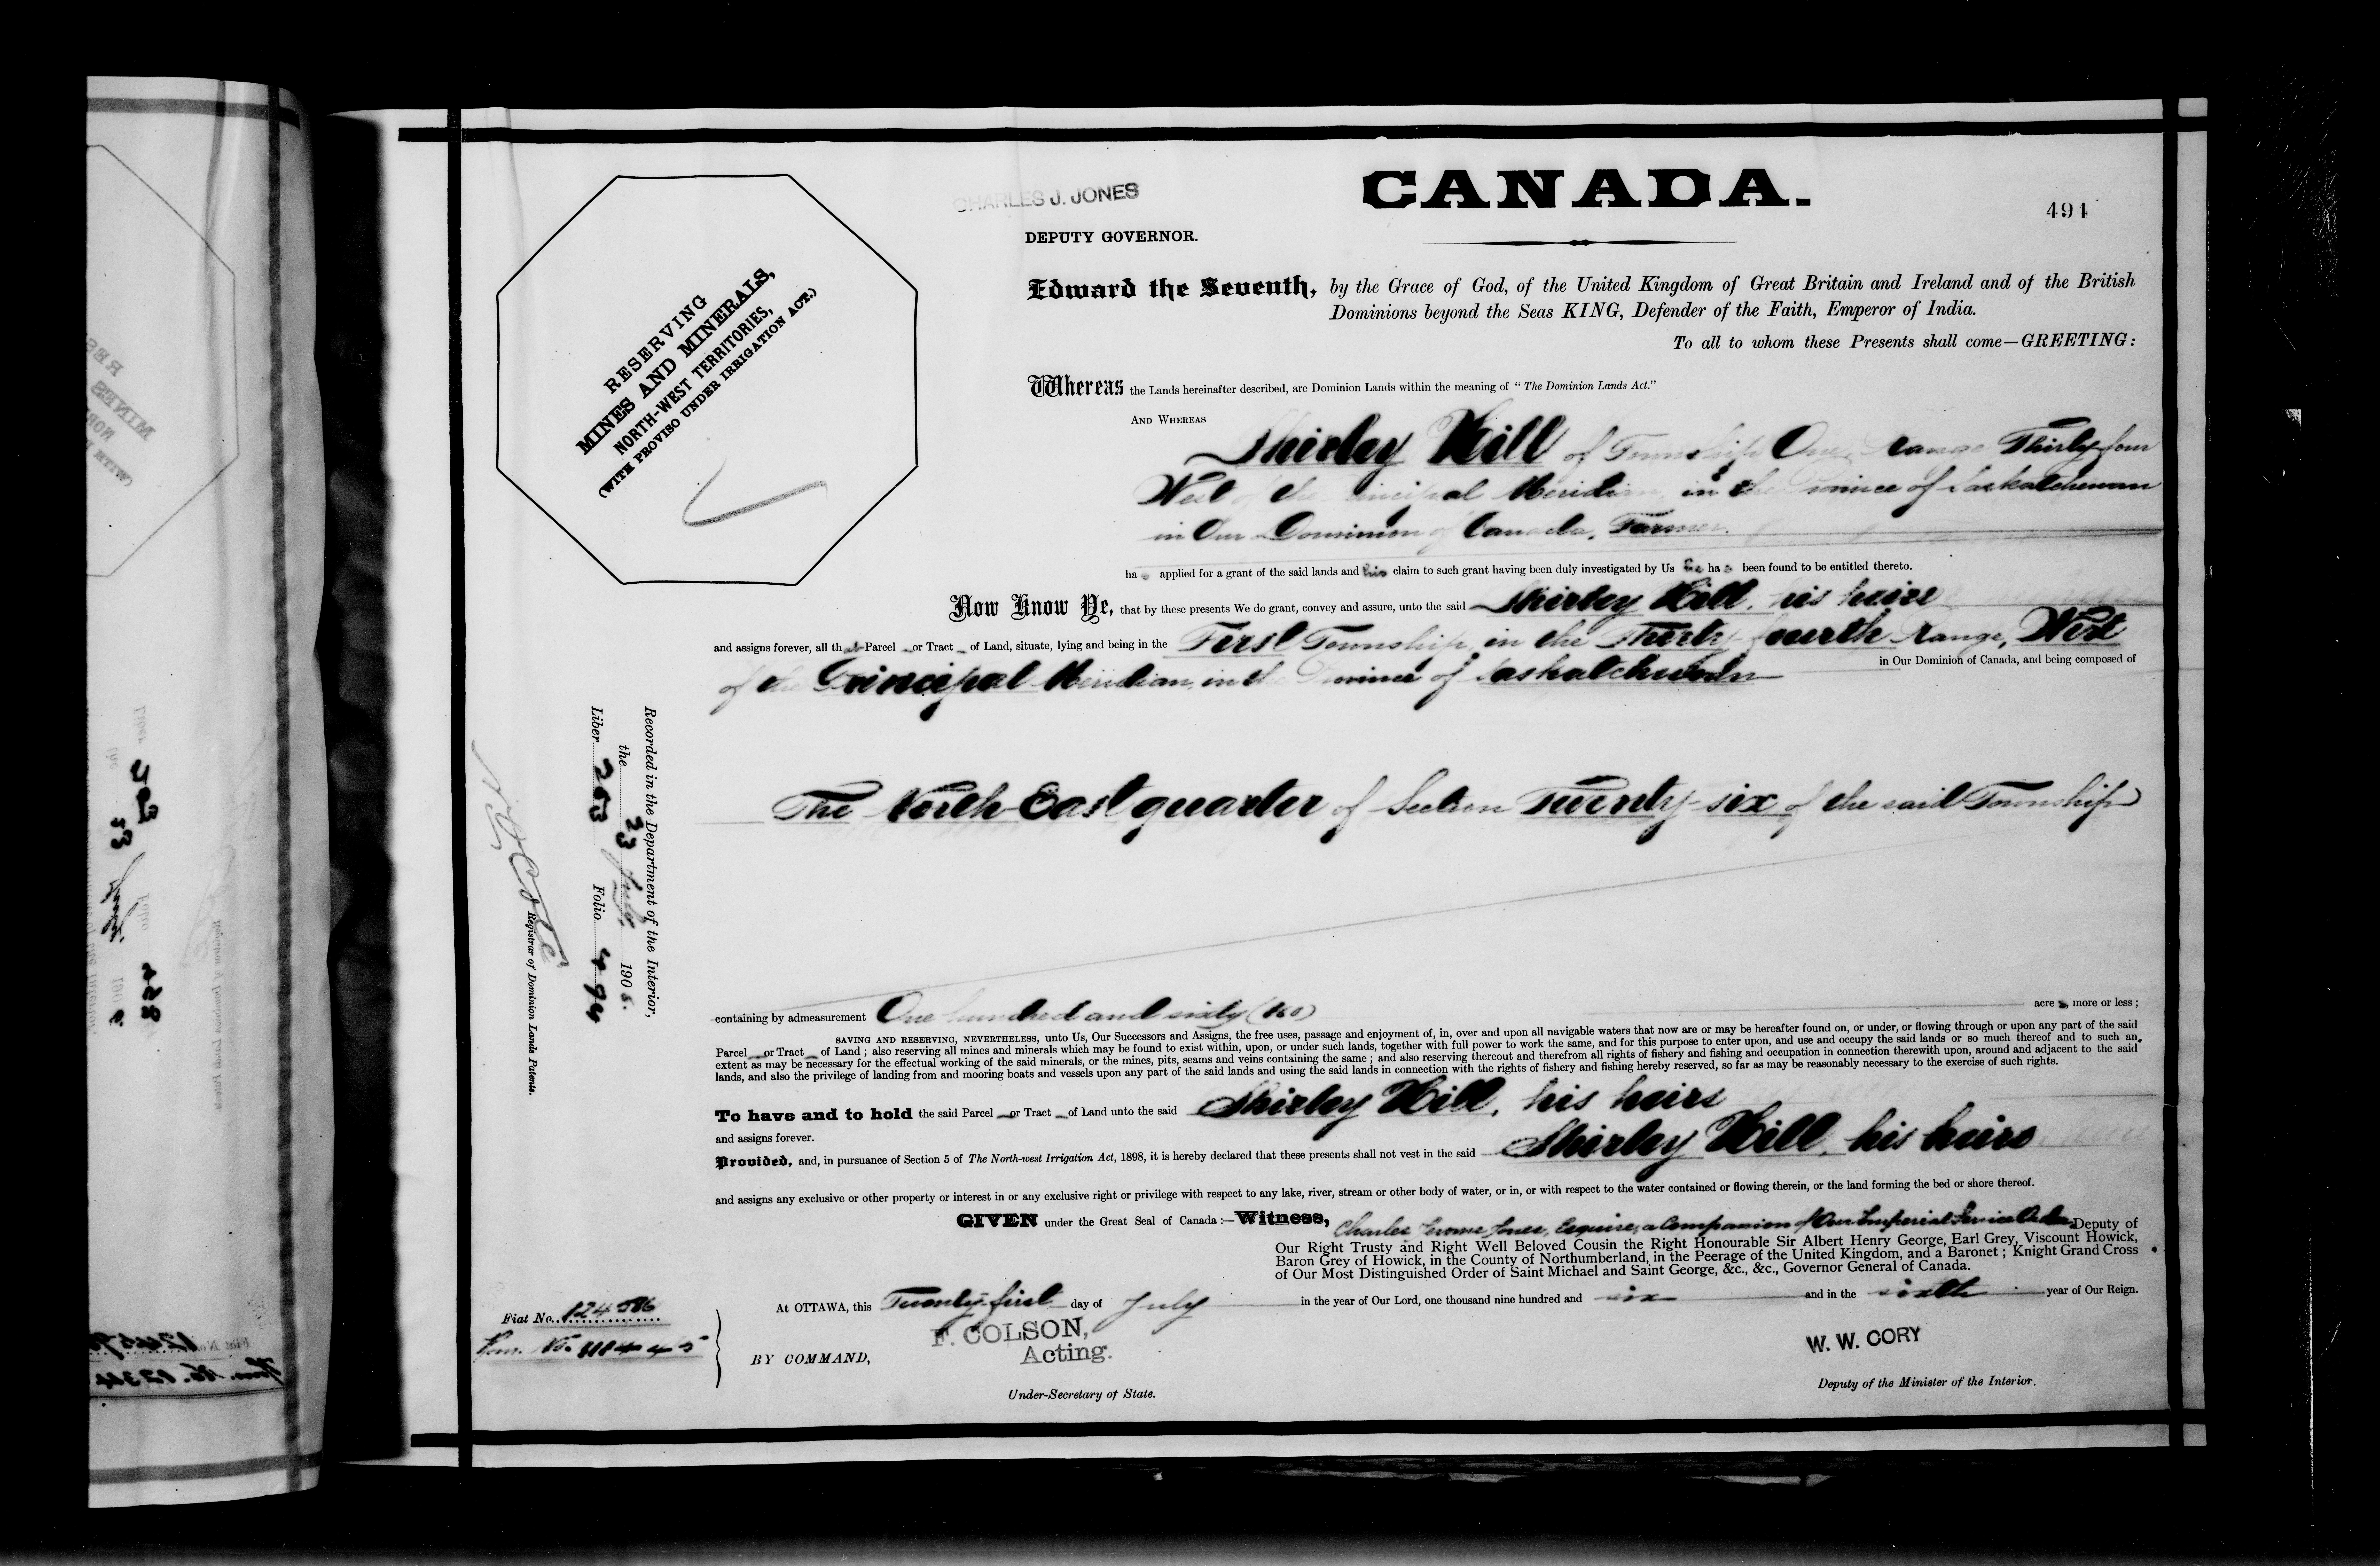 CHARLES J. JONES
CANADA.
494
DEPUTY GOVERNOR.
RESERVING
MINES AND MINERALS,
NORTH-WEST TERRITORIES,
(WITH PROVISO UNDER IRRIGATION ACT.)
Edward the Seventh, by the Grace of God, of the United Kingdom of Great Britain and Ireland and of the British
Dominions beyond the Seas KING, Defender of the Faith, Emperor of India.
To all to whom these Presents shall come—GREETING:
Whereas the Lands hereinafter described, are Dominion Lands within the meaning of "The Dominion Lands Act."
AND WHEREAS
Shirley Hill of Township One, Range Thirty-four
West of the Principal Meridian, in the Province of Saskatchewan
in Our Dominion of Canada, Farmer.
has applied for a grant of the said lands and his claim to such grant having been duly investigated by Us he has been found to be entitled thereto.
Now Know Ye, that by these presents We do grant, convey and assure, unto the said Shirley Hill, his heirs
and assigns forever, all that Parcel or Tract of Land, situate, lying and being in the First Township, in the Thirty-fourth Range, West
of the Principal Meridian, in the Province of Saskatchewan in Our Dominion of Canada, and being composed of
The North-East quarter of Section Twenty-six of the said Township
Recorded in the Department of the Interior,
the 23 July 1906.
Liber 263 Folio 494
Registrar of Dominion Lands Patents.
containing by admeasurement One hundred and sixty (160) acres, more or less;
SAVING AND RESERVING, NEVERTHELESS, unto Us, Our Successors and Assigns, the free uses, passage and enjoyment of, in, over and upon all navigable waters that now are or may be hereafter found on, or under, or flowing through or upon any part of the said
Parcel or Tract of Land; also reserving all mines and minerals which may be found to exist within, upon, or under such lands, together with full power to work the same, and for this purpose to enter upon, and use and occupy the said lands or so much thereof and to such an
extent as may be necessary for the effectual working of the said minerals, or the mines, pits, seams and veins containing the same; and also reserving thereout and therefrom all rights of fishery and fishing and occupation in connection therewith upon, around and adjacent to the said
lands, and also the privilege of landing from and mooring boats and vessels upon any part of the said lands and using the said lands in connection with the rights of fishery and fishing hereby reserved, so far as may be reasonably necessary to the exercise of such rights.
To have and to hold the said Parcel or Tract of Land unto the said Shirley Hill, his heirs
and assigns forever.
Provided, and, in pursuance of Section 5 of The North-west Irrigation Act, 1898, it is hereby declared that these presents shall not vest in the said Shirley Hill, his heirs
and assigns any exclusive or other property or interest in or any exclusive right or privilege with respect to any lake, river, stream or other body of water, or in, or with respect to the water contained or flowing therein, or the land forming the bed or shore thereof.
GIVEN under the Great Seal of Canada:—Witness, Charles Jerome Jones, Esquire, a Companion of Our Imperial Service Order, Deputy of
Our Right Trusty and Right Well Beloved Cousin the Right Honourable Sir Albert Henry George, Earl Grey, Viscount Howick,
Baron Grey of Howick, in the County of Northumberland, in the Peerage of the United Kingdom, and a Baronet; Knight Grand Cross
of Our Most Distinguished Order of Saint Michael and Saint George, &c., &c., Governor General of Canada.
At OTTAWA, this Twenty-first day of July in the year of Our Lord, one thousand nine hundred and six and in the sixth year of Our Reign.
Fiat No. 124586
F. COLSON,
Acting.
BY COMMAND,
Under-Secretary of State.
W. W. CORY
Deputy of the Minister of the Interior.